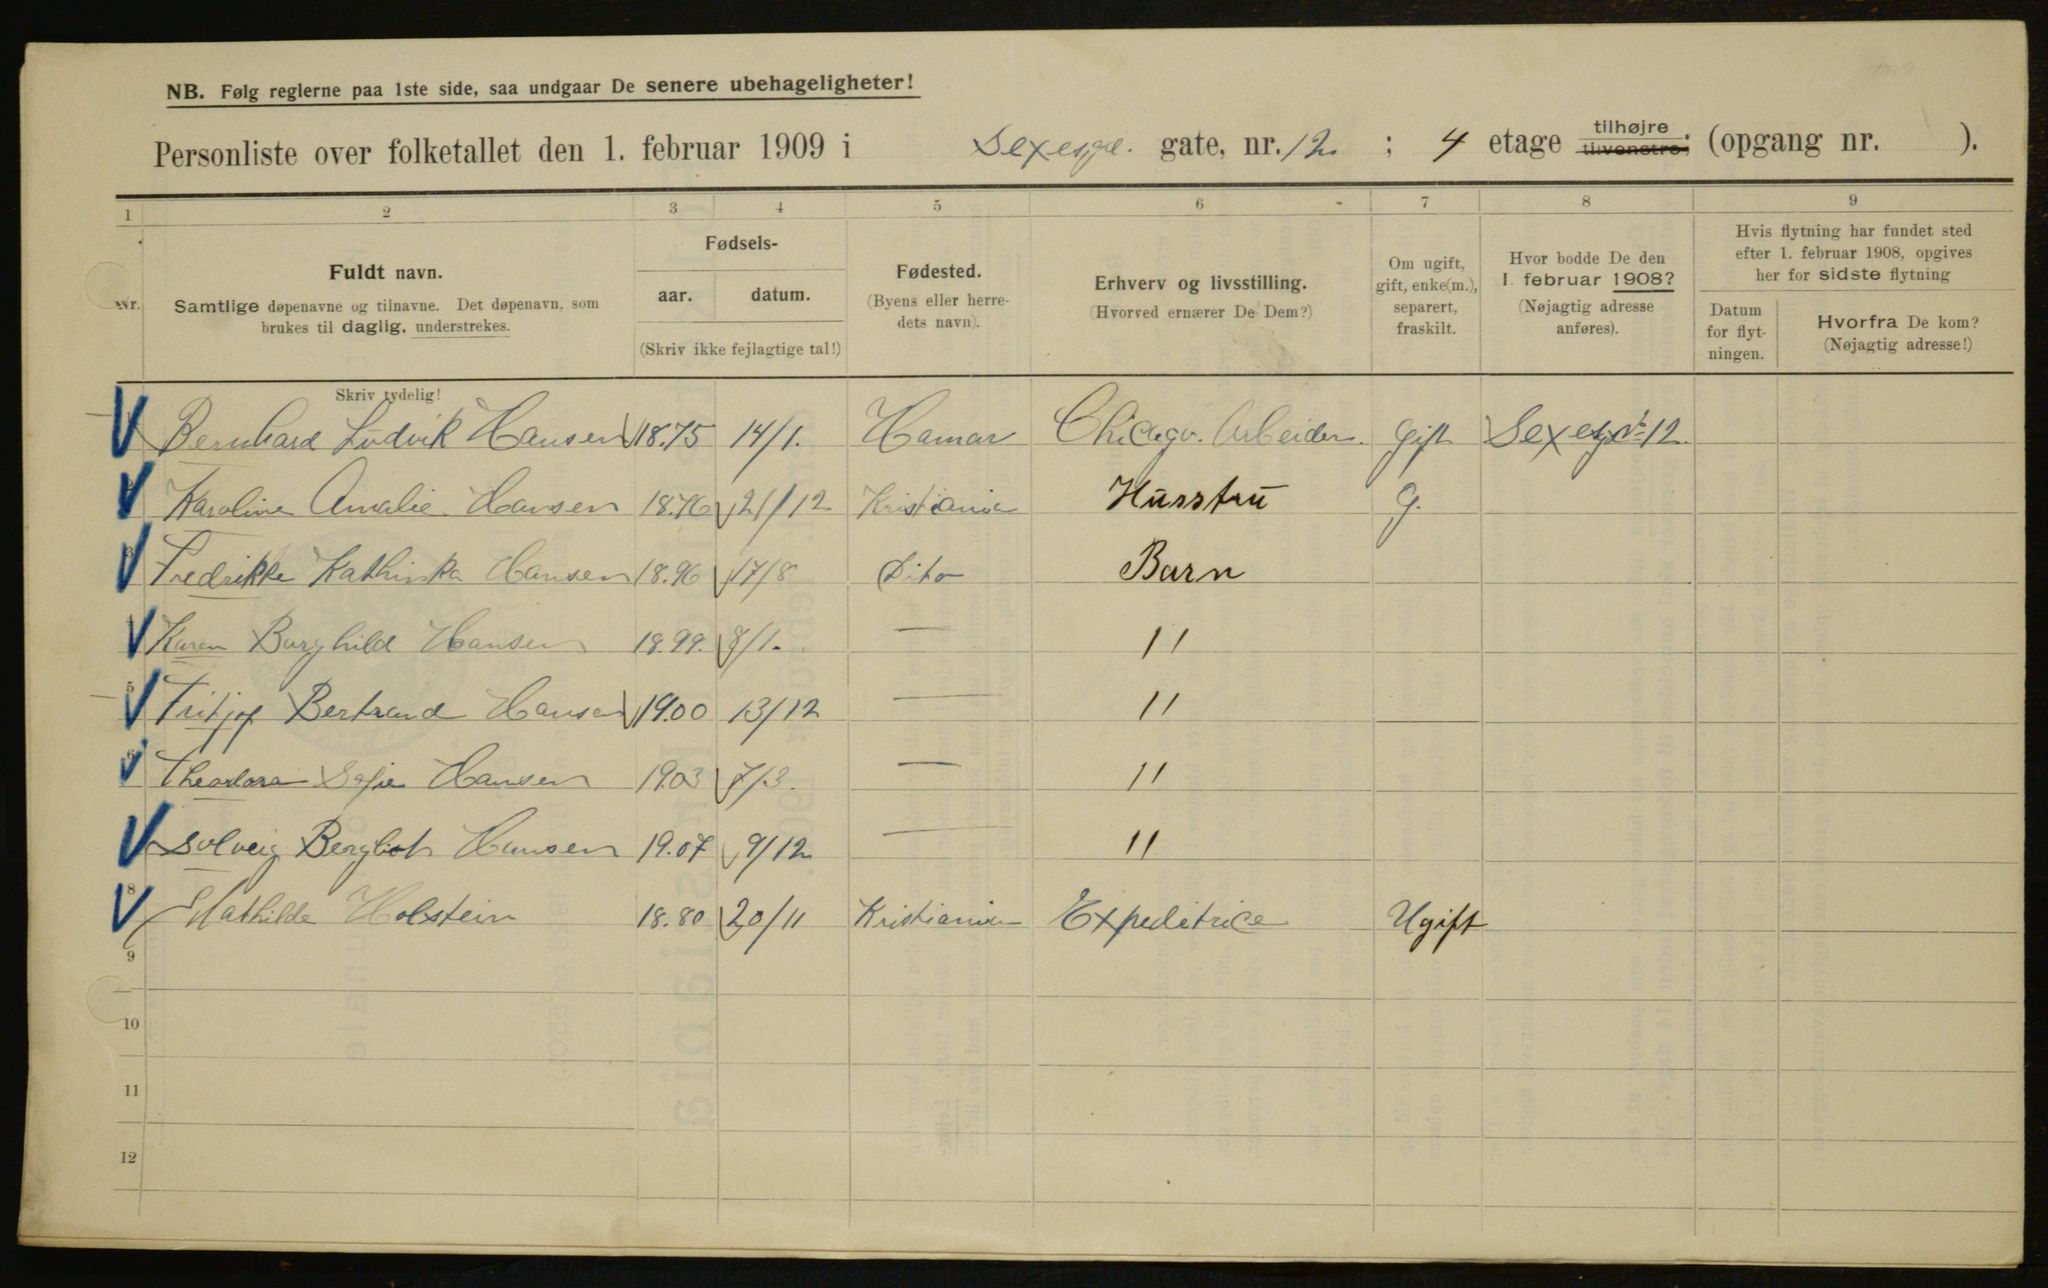 NB. Følg reglerne paa 1ste side, saa undgaar De senere ubehageligheter!
Personliste over folketallet den 1. februar 1909 i Sexesge. gate, nr. 12 ; 4 etage tilhøjre. tilvenstre; (opgang nr. ).
1 2 3 4 5 6 7 8 9
Nr.
Fuldt navn.
Samtlige døpenavne og tilnavne. Det døpenavn, som
brukes til daglig, understrekes.
Fødsels-
aar. datum.
(Skriv ikke fejlagtige tal!)
Fødested.
(Byens eller herre-
dets navn).
Erhverv og livsstilling.
(Hvorved ernærer De Dem?)
Om ugift,
gift, enke(m.),
separert,
fraskilt.
Hvor bodde De den
1. februar 1908?
(Nøjagtig adresse
anføres).
Hvis flytning har fundet sted
efter 1. februar 1908, opgives
her for sidste flytning
Datum
for flyt-
ningen.
Hvorfra De kom?
(Nøjagtig adresse!)
Skriv tydelig!
1 Bernhard Ludvik Hansen 18.75 14/1. Hamar Chicago. Arbeider. gift Sexesg. № 12.
2 Karoline Amalie Hansen 18.76 21/12 Kristiania Husstru g.
3 Fredrikke Kathinka Hansen 18.96 17/8 Dito Barn
4 Karen Borghild Hansen 18.99. 8/1. — 11
5 Fritjof Bertrand Hansen 19.00 13/12 — 11
6 Theodora Sofie Hansen 19.03 7/3. — 11
Solveig Bergliot Hansen 19.07 9/12 — 11
8 Mathilde Holstein 18.80 20/11 Kristiania Expeditrice Ugift
9
10
11
12